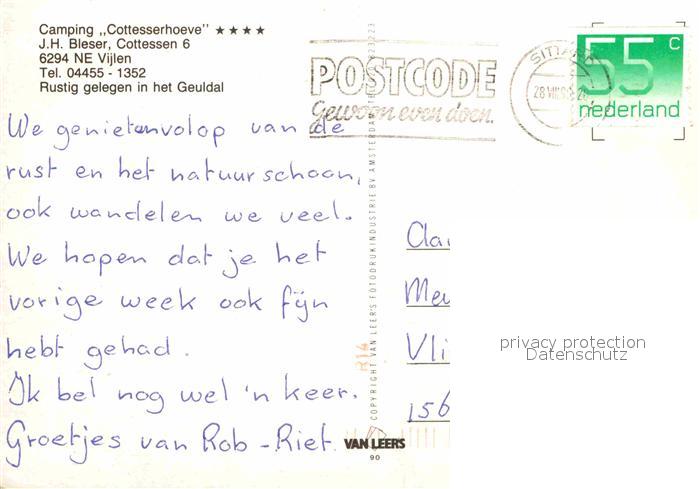 Camping ,,Cottesserhoeve" ★★★★
J.H. Bleser, Cottessen 6
6294 NE Vijlen
Tel. 04455 - 1352
Rustig gelegen in het Geuldal
POSTCODE
Gewoon even doen.
SITTARD
28 VIII
55 c
nederland
We genieten volop van de
rust en het natuurschoon,
ook wandelen we veel.
We hopen dat je het
vorige week ook fijn
hebt gehad.
Ik bel nog wel 'n keer.
Groetjes van Rob - Riet.
COPYRIGHT VAN LEER'S FOTODRUKINDUSTRIE BV AMSTERDAM
B14
VAN LEERS
90
Vli
156
privacy protection
Datenschutz